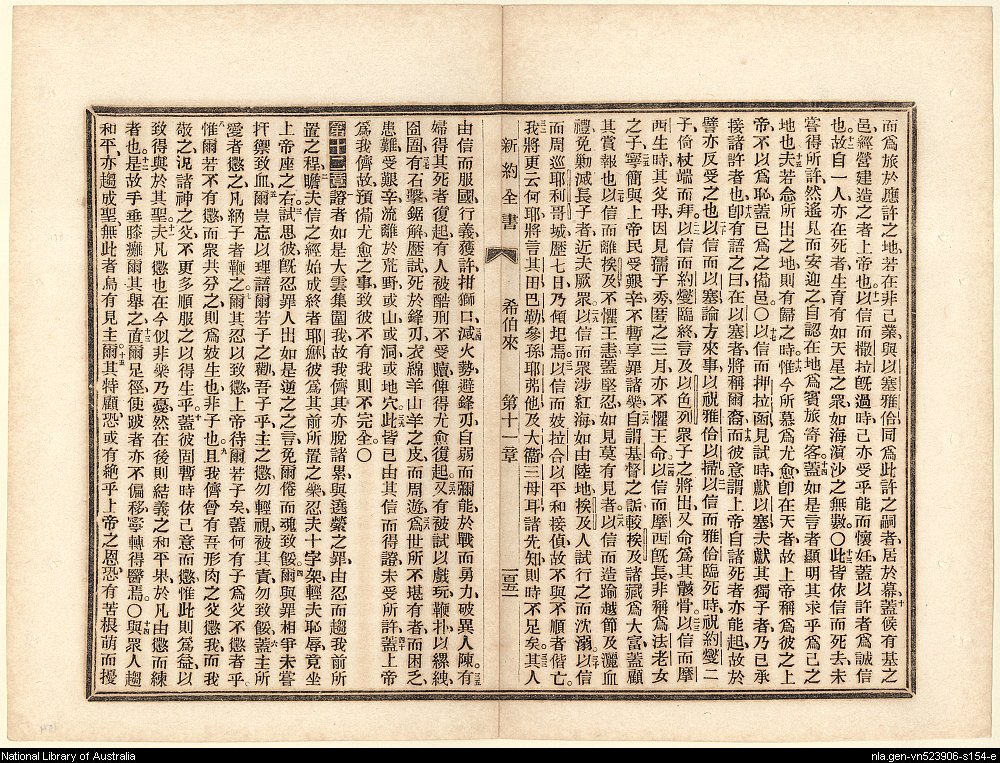 而爲旅於應許之地若在非己業與以塞雅佮同爲此許之嗣者居於幕蓋候有基之
邑經營建造之者上帝也以信而撒拉旣過時己亦受乎能而懷妊蓋以許者爲誠信
也故自一人亦在死者生育有如天星之衆如海濱沙之無數〇此皆依信而死去未
嘗得所許然遙見而安迎之自認在地爲賓旅寄客蓋如是言者顯明其求乎爲己之
地也夫若念所出之地則有歸之時惟今所慕爲尤愈卽在天者故上帝稱爲彼之上
帝不以爲恥蓋已爲之備邑〇以信而押拉函見試時獻以塞夫獻其獨子者乃已承
接諸許者也卽有語之曰在以塞者將稱爾裔而彼意謂上帝自諸死者亦能起故於
譬亦反受之也以信而以塞論方來事以祝雅佮以掃以信而雅佮臨死時祝約燮二
子倚杖端而拜以信而約燮臨終言及以色列衆子之將出又命爲其骸骨以信而摩
西生時其父母因見孺子秀匿之三月亦不懼王命以信而摩西旣長非稱爲法老女
之子寧簡與上帝民受艱辛不暫享罪諸樂自謂基督之詬較挨及諸藏爲大富蓋顧
其賞報也以信而離挨及不懼王恚蓋堅忍如見莫有見者以信而造踰越節及灑血
禮免勦滅長子者近夫厥衆以信而衆涉紅海如由陸地挨及人試行之而沈溺以信
而周巡耶利哥城歷七日乃傾圮焉以信而妓拉合以平和接偵故不與不順者偕亡
我將更云何耶將言其田巴勒參孫耶弗他及大衞三母耳諸先知則時不足矣其人
新約全書 希伯來 第十一章 一百五二
由信而服國行義獲許拑獅口滅火勢避鋒刃自弱而彌能於戰而勇力破異人陳有
婦得其死者復起有人被酷刑不受贖俾得尤愈復起又有被試以戲玩鞭扑以縲絏
囹圄有石擊鋸解歷試死於鋒刃衣綿羊山羊之皮而周遊爲世所不堪有者而困乏
患難受艱辛流離於荒野或山或洞或地穴此皆已由其信而得證未受所許蓋上帝
爲我儕故預備尤愈之事致彼不有我則不完全〇
第十二章證者如是大雲集圍我故我儕其亦脫諸累與遶縈之罪由忍而趨我前所
置之程瞻夫信之經始成終者耶穌彼爲其前所置之樂忍夫十字架輕夫恥辱竟坐
上帝座之右試思彼旣忍罪人出如是逆之之言免爾倦而魂致餒爾與罪相爭未嘗
扞禦致血爾豈忘以理語爾若子之勸吾子乎主之懲勿輕視被其責勿致餒蓋主所
愛者懲之凡納子者鞭之爾其忍以致懲上帝待爾若子矣蓋何有子爲父不懲者乎
惟爾若不有懲而衆共分之則爲妓生也非子也且我儕嘗有吾形肉之父懲我而我
敬之況諸神之父不更多順服之以得生乎蓋彼固暫時依己意而懲惟此則爲益以
致得與於其聖夫凡懲也在今似非樂乃憂然在後則結義之和平果於凡由懲而練
者也是故手垂膝癱爾其舉之直爾足徑使跛者亦不偏移寧轉得醫焉〇與眾人趨
和平亦趨成聖無此者烏有見主爾其特顧恐或有絕乎上帝之恩恐有苦根萌而擾
National Library of Australia
nla.gen-vn523906-s154-e